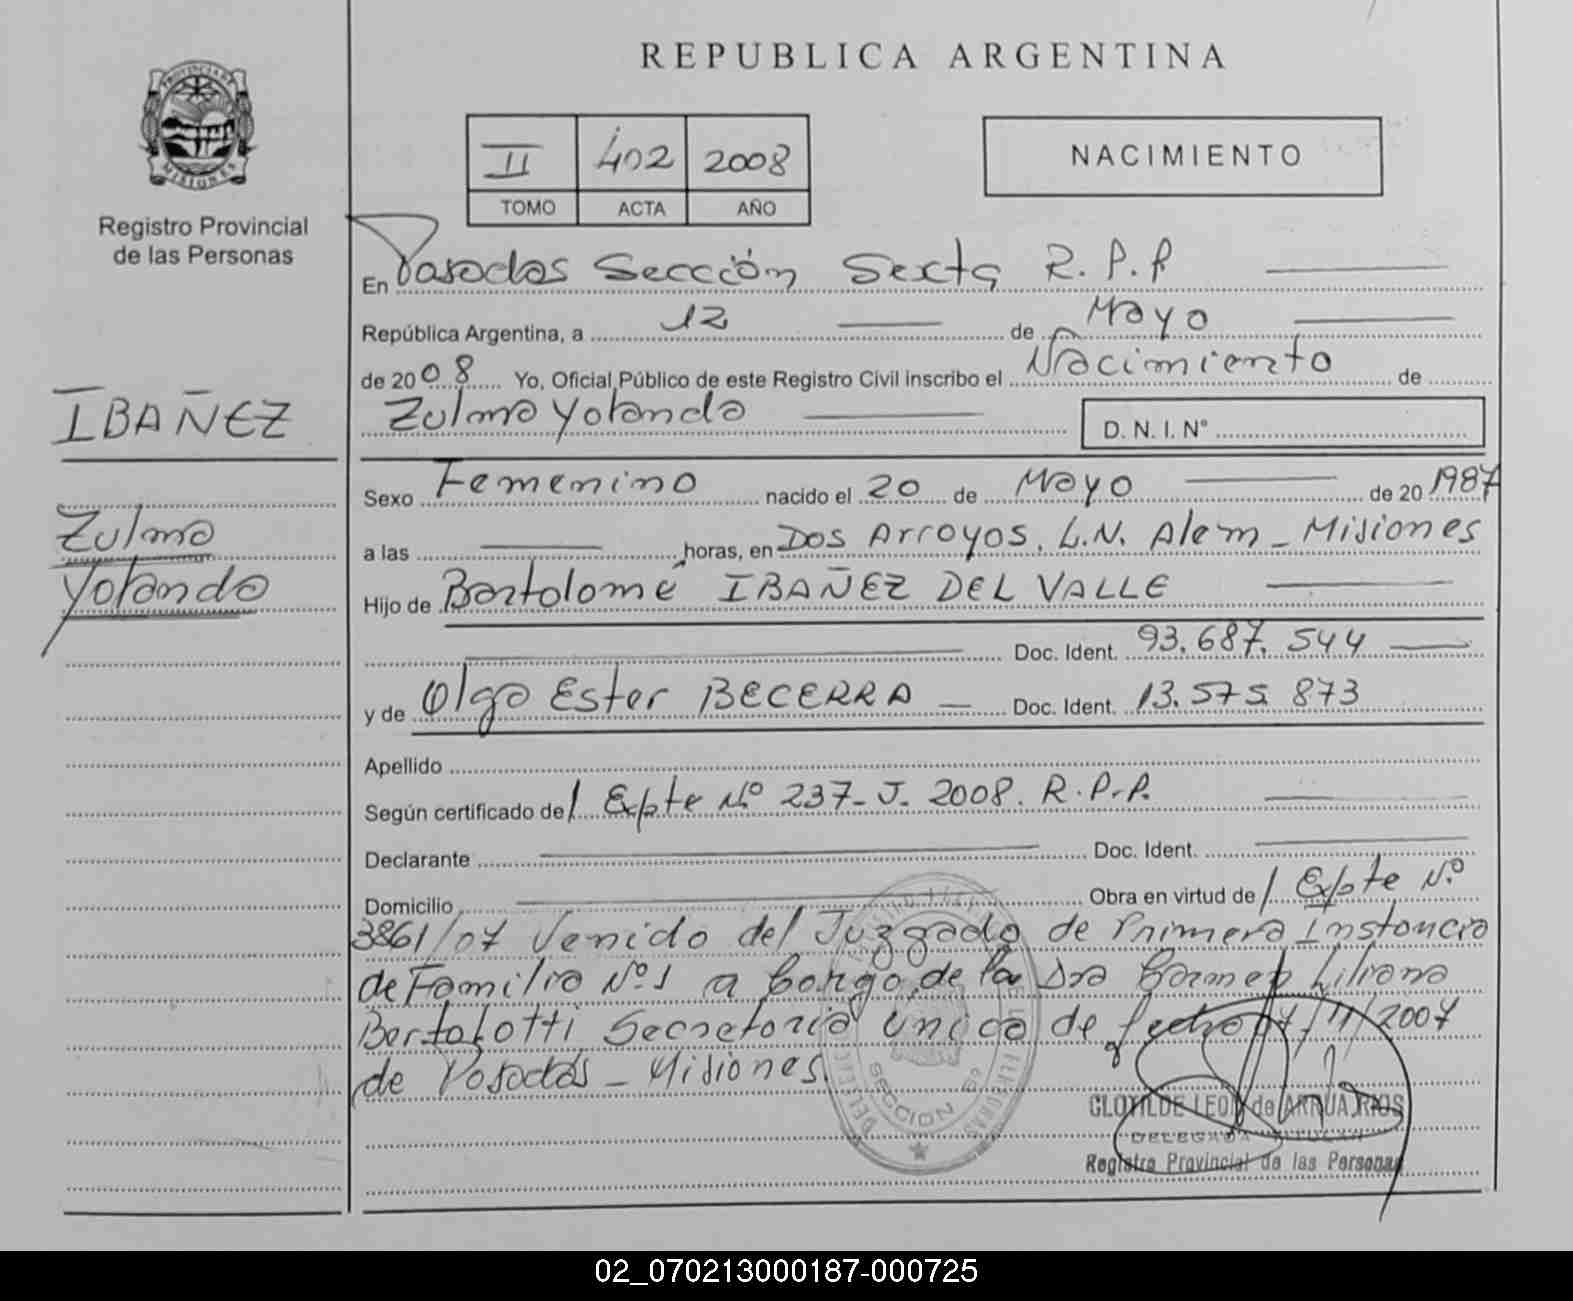 REPUBLICA ARGENTINA
PROVINCIA DE
MISIONES
Registro Provincial
de las Personas
II 402 2008
TOMO ACTA AÑO
NACIMIENTO
En Posadas Sección Sexta R.P.P
República Argentina, a 12 de Mayo
de 2008 Yo, Oficial Público de este Registro Civil inscribo el Nacimiento de
Zulma Yolanda
D. N. I. N°
IBAÑEZ
Zulma
Yolanda
Sexo Femenino nacido el 20 de Mayo de 20 1987
a las horas, en Dos Arroyos. L.N. Alem - Misiones
Hijo de Bartolomé IBAÑEZ DEL VALLE
Doc. Ident. 93.687.544
y de Olga Ester BECERRA Doc. Ident. 13.575.873
Apellido
Según certificado de / Expte Nº 237-J-2008. R.P.P.
Declarante Doc. Ident.
Domicilio Obra en virtud de / Expte Nº
3861/07 Venido del Juzgado de Primera Instancia
de Familia Nº1 a Cargo de la Dra Carmen Liliana
Bertolotti Secretaria Unica de fecha /11/2007
de Posadas - Misiones.
SECCION 6º
CLOTILDE LEON de ARRUA RIOS
DELEGADA TITULAR
Registro Provincial de las Personas
02_070213000187-000725